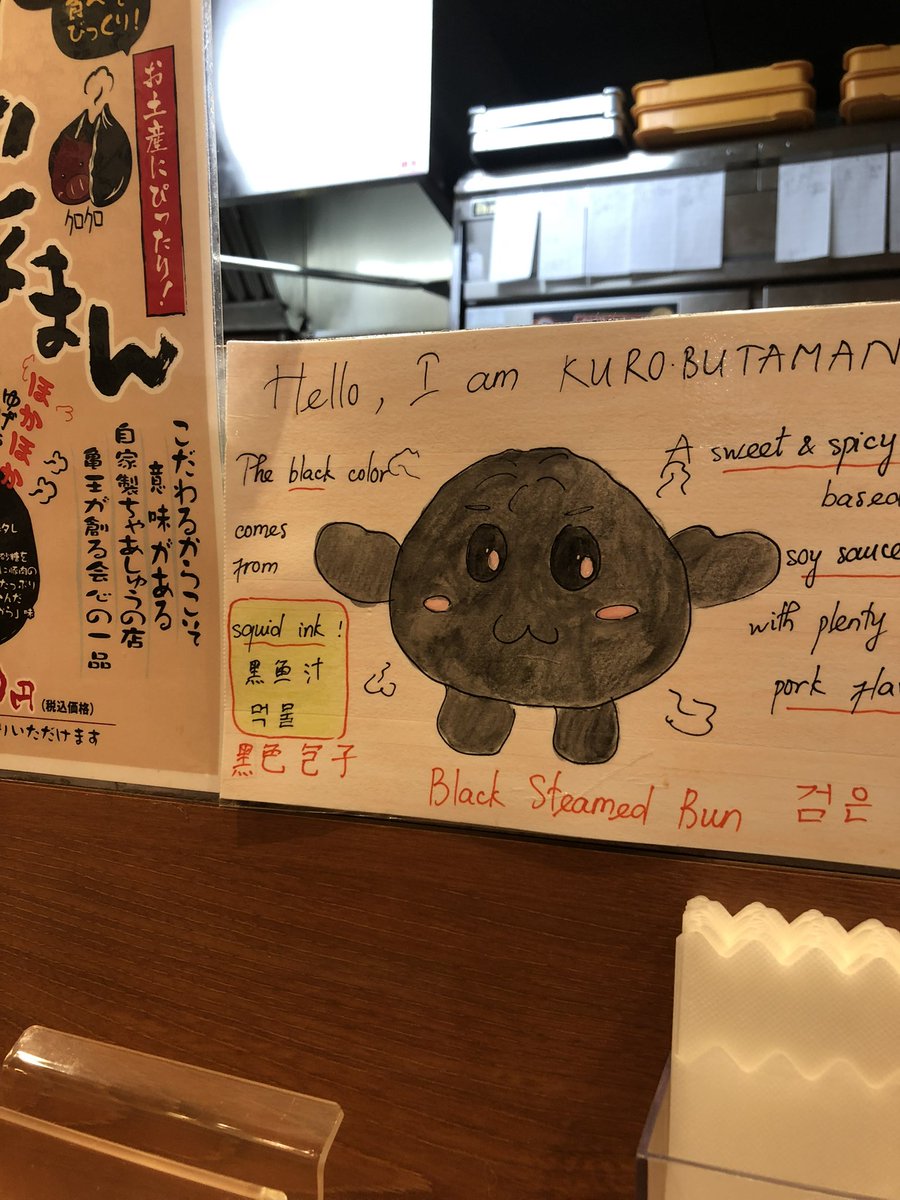 食べて
びっくり!
お土産にぴったり!
クロクロ
まん
ほかほか
こだわるからこいて
意味がある
自家製ちゃあしゅうの店
亀王が創る会心の一品
円(税込価格)
りいただけます
Hello, I am KURO.BUTAMAN
The black color
comes
from
squid ink!
黒魚汁
먹물
黑色包子
A sweet & spicy
based
soy sauce
with plenty
pork
Black Steamed Bun 검은